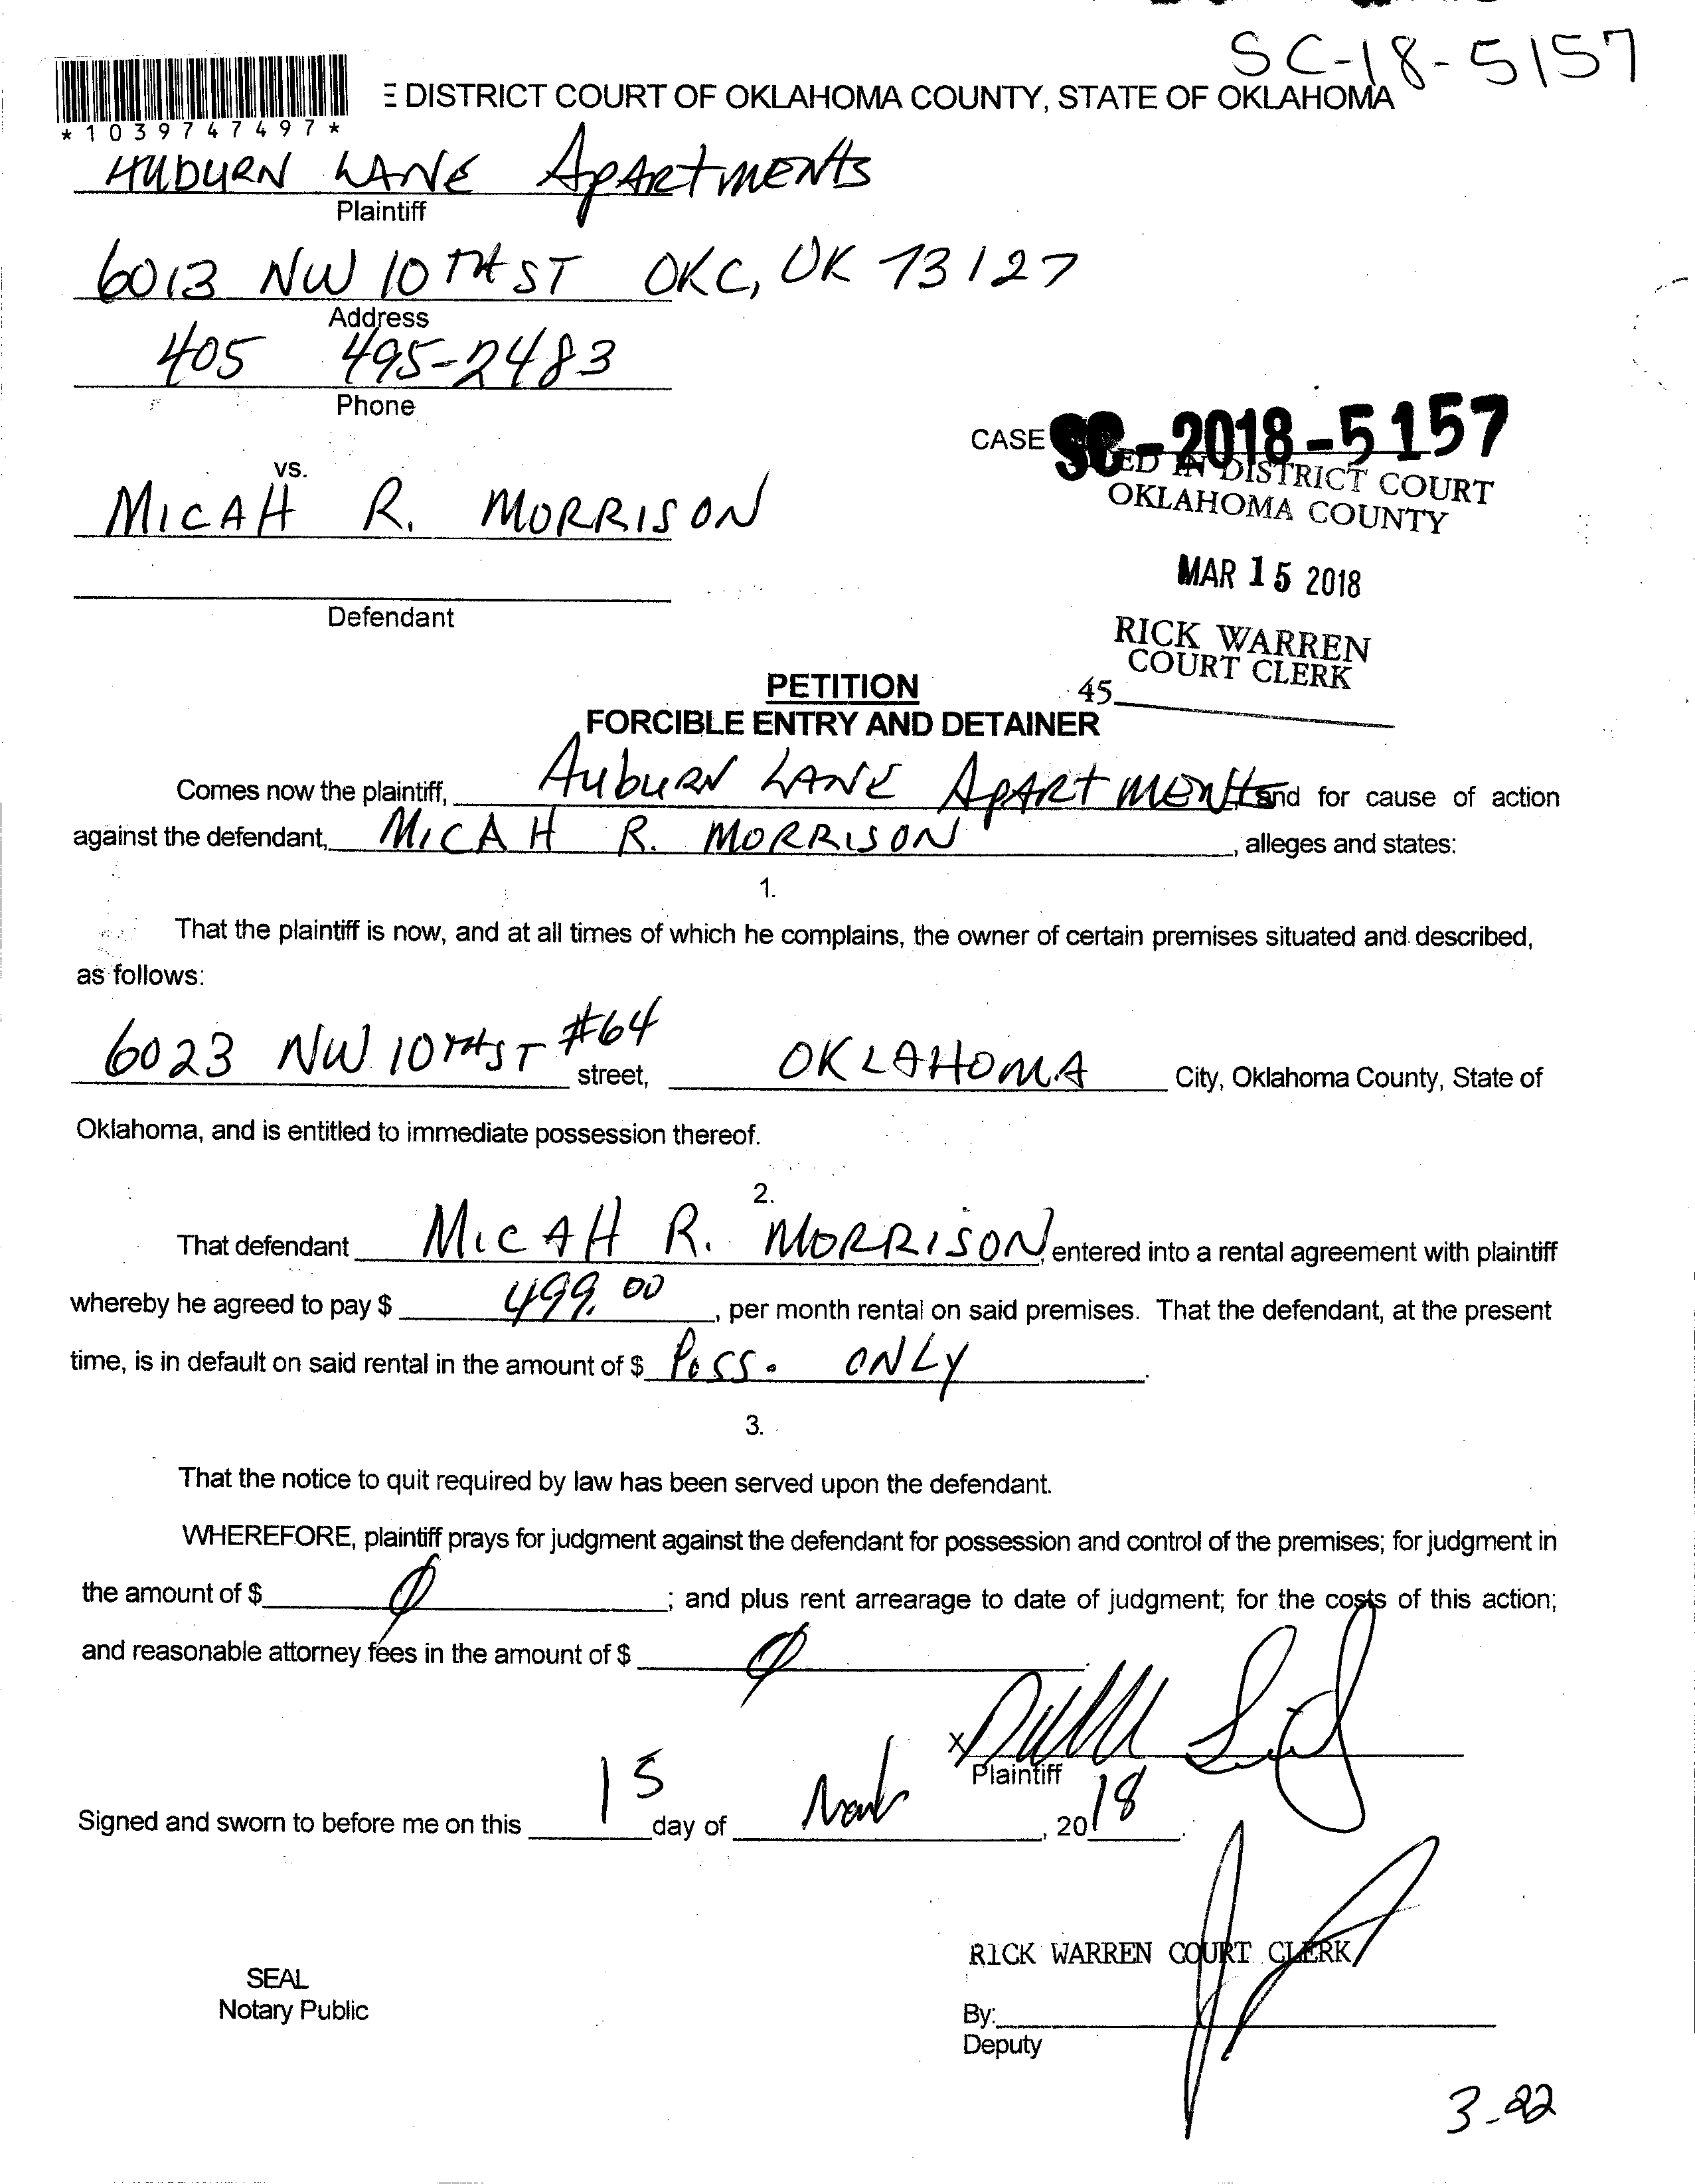 SC-18-5157
E DISTRICT COURT OF OKLAHOMA COUNTY, STATE OF OKLAHOMA
*1039747497*
AUBURN LANE APARTMENTS
Plaintiff
6013 NW 10TH ST OKC, OK 73127
Address
405 495-2483
Phone
CASE SC-2018-5157
ED IN DISTRICT COURT
OKLAHOMA COUNTY
vs.
MICAH R. MORRISON
MAR 15 2018
Defendant
RICK WARREN
COURT CLERK
45
PETITION
FORCIBLE ENTRY AND DETAINER
Comes now the plaintiff, AUBURN LANE APARTMENTS and for cause of action
against the defendant, MICAH R. MORRISON, alleges and states:
1.
That the plaintiff is now, and at all times of which he complains, the owner of certain premises situated and described,
as follows:
6023 NW 10TH ST #64 street, OKLAHOMA City, Oklahoma County, State of
Oklahoma, and is entitled to immediate possession thereof.
2.
That defendant MICAH R. MORRISON, entered into a rental agreement with plaintiff
whereby he agreed to pay $ 499.00, per month rental on said premises. That the defendant, at the present
time, is in default on said rental in the amount of $ Poss. ONLY.
3.
That the notice to quit required by law has been served upon the defendant.
WHEREFORE, plaintiff prays for judgment against the defendant for possession and control of the premises; for judgment in
the amount of $ Ø; and plus rent arrearage to date of judgment; for the costs of this action;
and reasonable attorney fees in the amount of $ Ø.
X
Plaintiff
Signed and sworn to before me on this 15 day of March, 2018.
RICK WARREN COURT CLERK
SEAL
Notary Public
By:
Deputy
3-22